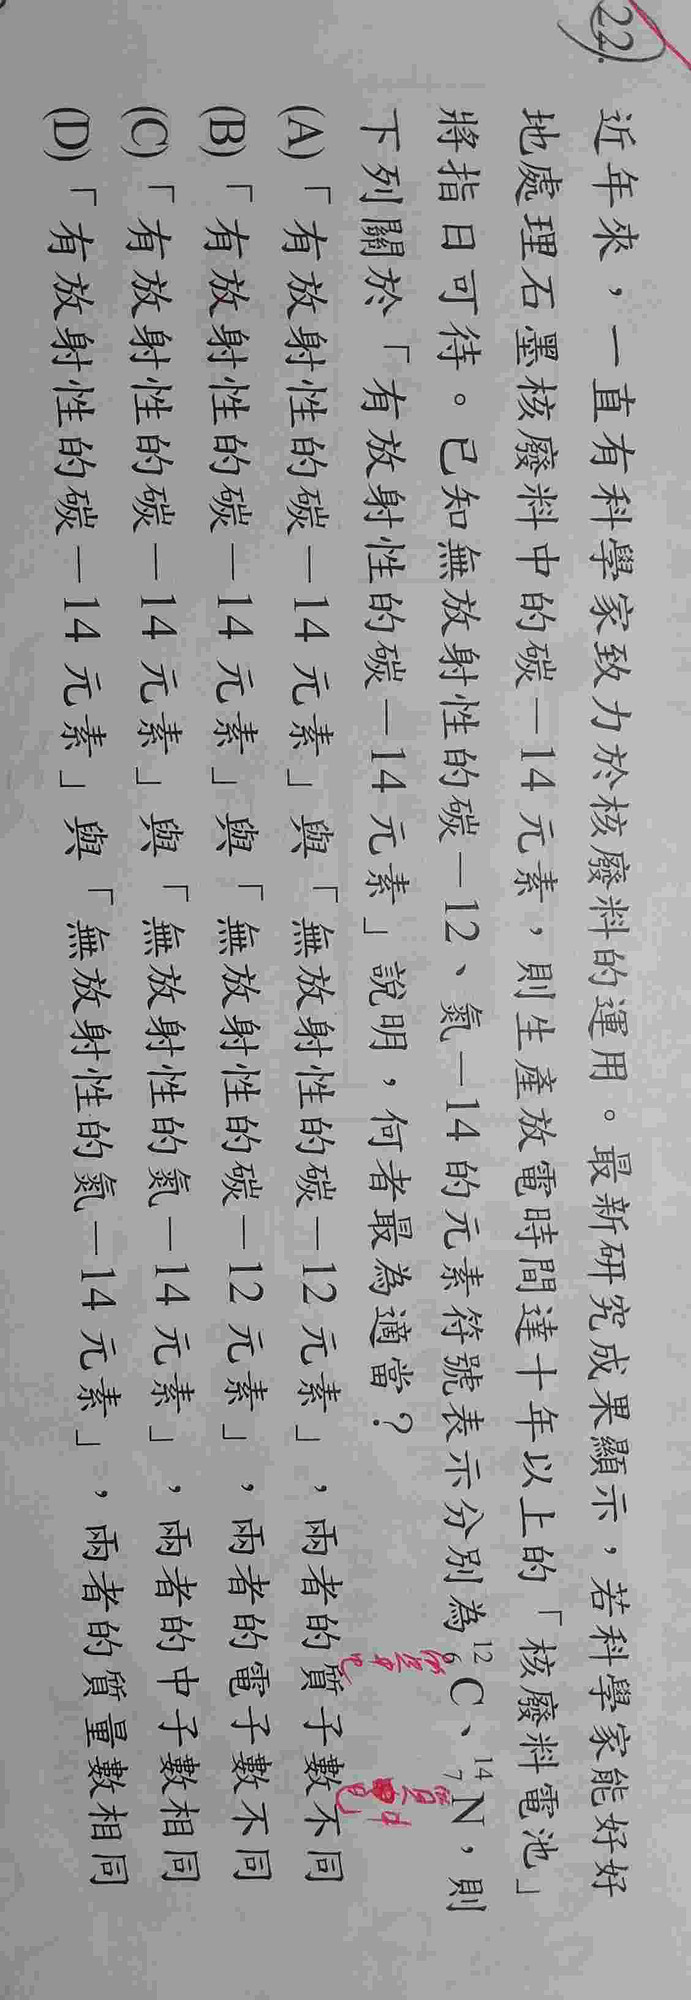 22. 近年來，一直有科學家致力於核廢料的運用。最新研究成果顯示，若科學家能好好
地處理石墨核廢料中的碳－14 元素，則生產放電時間達十年以上的「核廢料電池」
將指日可待。已知無放射性的碳－12、氮－14 的元素符號表示分別為 ¹²₆C、¹⁴₇N，則
下列關於「有放射性的碳－14 元素」說明，何者最為適當？
(A)「有放射性的碳－14 元素」與「無放射性的碳－12 元素」，兩者的質子數不同
(B)「有放射性的碳－14 元素」與「無放射性的碳－12 元素」，兩者的電子數不同
(C)「有放射性的碳－14 元素」與「無放射性的氮－14 元素」，兩者的中子數相同
(D)「有放射性的碳－14 元素」與「無放射性的氮－14 元素」，兩者的質量數相同